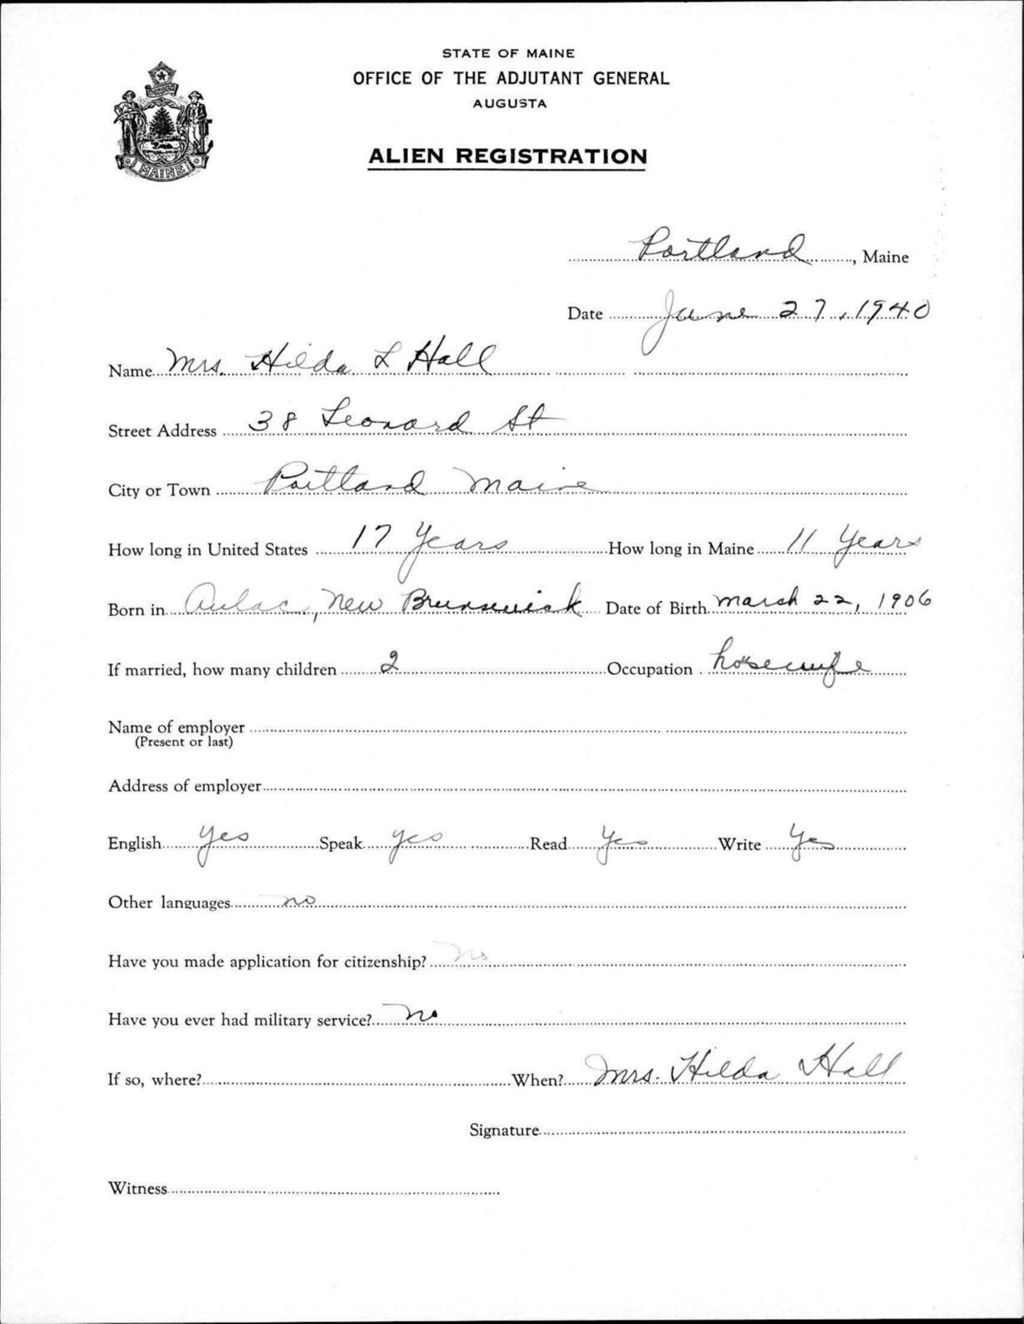 STATE OF MAINE
OFFICE OF THE ADJUTANT GENERAL
AUGUSTA
ALIEN REGISTRATION
MAINE
Portland, Maine
Date June 27, 1940
Name Mrs. Hilda L Hall
Street Address 38 Leonard St
City or Town Portland Maine
How long in United States 17 Years How long in Maine 11 Years
Born in Aulac, New Brunswick Date of Birth March 22, 1906
If married, how many children 2 Occupation hosewife
Name of employer
(Present or last)
Address of employer
English Yes Speak yes Read Yes Write Yes
Other languages no
Have you made application for citizenship? No
Have you ever had military service? No
If so, where? When? Mrs. Hilda Hall
Signature
Witness